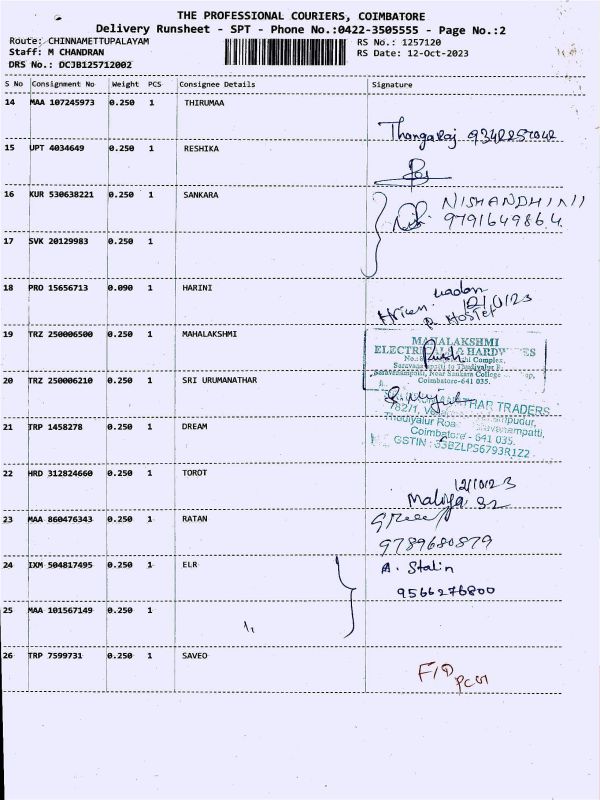 THE PROFESSIONAL COURIERS, COIMBATORE
Delivery Runsheet - SPT - Phone No.:0422-3505555 - Page No.:2
Route: CHINNAMETTUPALAYAM RS No.: 1257120
Staff: M CHANDRAN RS Date: 12-Oct-2023
DRS No.: DCJB125712002
S No Consignment No Weight PCS Consignee Details Signature
14 MAA 107245973 0.250 1 THIRUMAA
Thangaraj
15 UPT 4034649 0.250 1 RESHIKA
16 KUR 530638221 0.250 1 SANKARA
NISHANDHINII
9791649864
17 SVK 20129983 0.250 1
18 PRO 15656713 0.090 1 HARINI
12/10/23
Hostel
19 TRZ 250006500 0.250 1 MAHALAKSHMI
MAHALAKSHMI
ELECTRICALS & HARDWARES
Complex,
Near Sankara College
Coimbatore-641 035.
20 TRZ 250006210 0.250 1 SRI URUMANATHAR
TRADERS
782/1,
Thudiyalur Road
Saravanampatti,
21 TRP 1458278 0.250 1 DREAM
Coimbatore - 641 035.
GSTIN : 33BZLPS6793R1Z2
22 HRD 312824660 0.250 1 TOROT
12/10/23
23 MAA 860476343 0.250 1 RATAN
9789680879
24 IXM 504817495 0.250 1 ELR
A. Stalin
9566276800
25 MAA 101567149 0.250 1
26 TRP 7599731 0.250 1 SAVEO
F/D